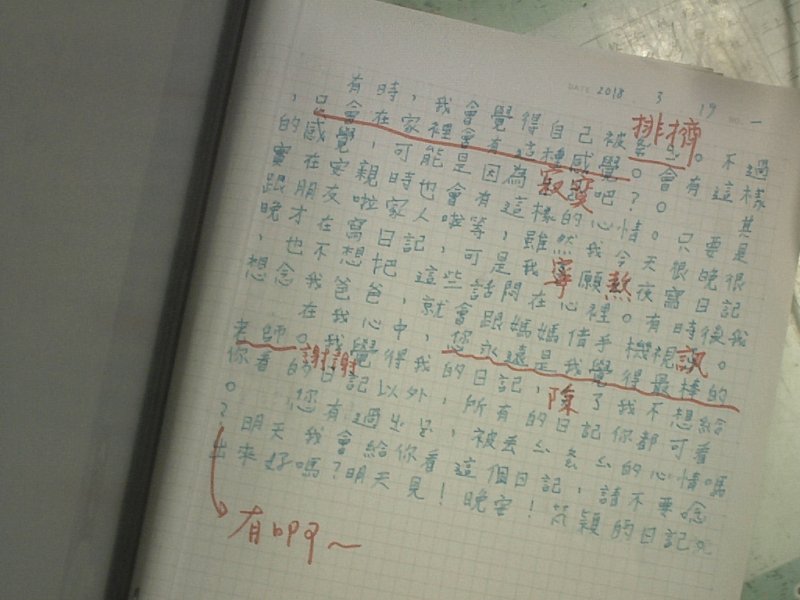 DATE 2018 3 19 NO. 一
有時，我會覺得自己被排擠。不過
，只會在家裡會有這種感覺。會有這樣
的感覺，可能是因為寂寞吧？。其
實在安親時也會有這樣的心情。只要是
跟朋友啦家人啦等，雖然我今天很晚很
晚才在寫日記，可是我寧願熬夜寫日記
，也不想把這些話問在心裡。有時後我
想念我爸爸，就會跟媽媽借手機視訊。
在我心中，您永遠是我覺得最棒的
老師。謝謝我覺得我的日記，除了我不想給
你看的日記以外，所有的日記你都可看
。您有過生，被丟ㄙ丟ㄙ的心情嗎
？明天我會給你看這個日記，請不要唸
出來好嗎？明天見！晚安！穎的日記。
有啊～